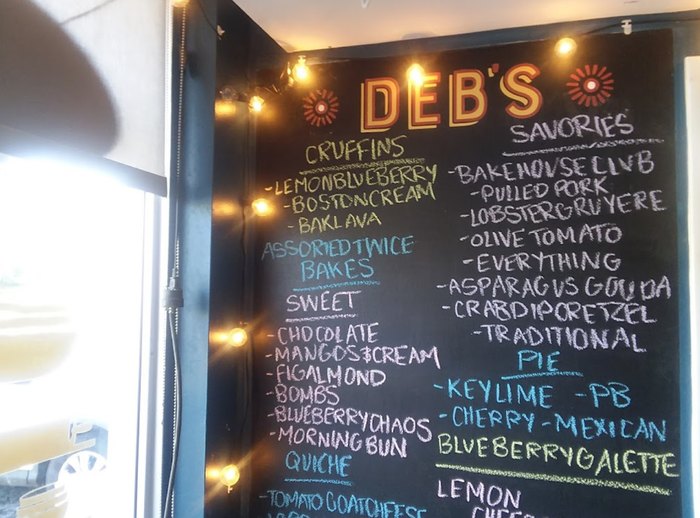 DEB'S
CRUFFINS
-LEMONBLUEBERRY
-BOSTONCREAM
-BAKLAVA
ASSORIED TWICE
BAKES
SWEET
-CHOCOLATE
-MANGOS$CREAM
-FIGALMOND
-BOMBS
-BLUEBERRYCHAOS
-MORNINGBUN
QUICHE
-TOMATOGOATCHEESE
SAVORIES
-BAKEHOUSECLVB
-PULLED PORK
-LOBSTERGRUYERE
-OLIVETOMATO
-EVERYTHING
-ASPARAGUS GOUDA
-CRABDIPPRETZEL
-TRADITIONAL
PIE
-KEYLIME -PB
-CHERRY -MEXICAN
BLVEBERRYGALETTE
LEMON